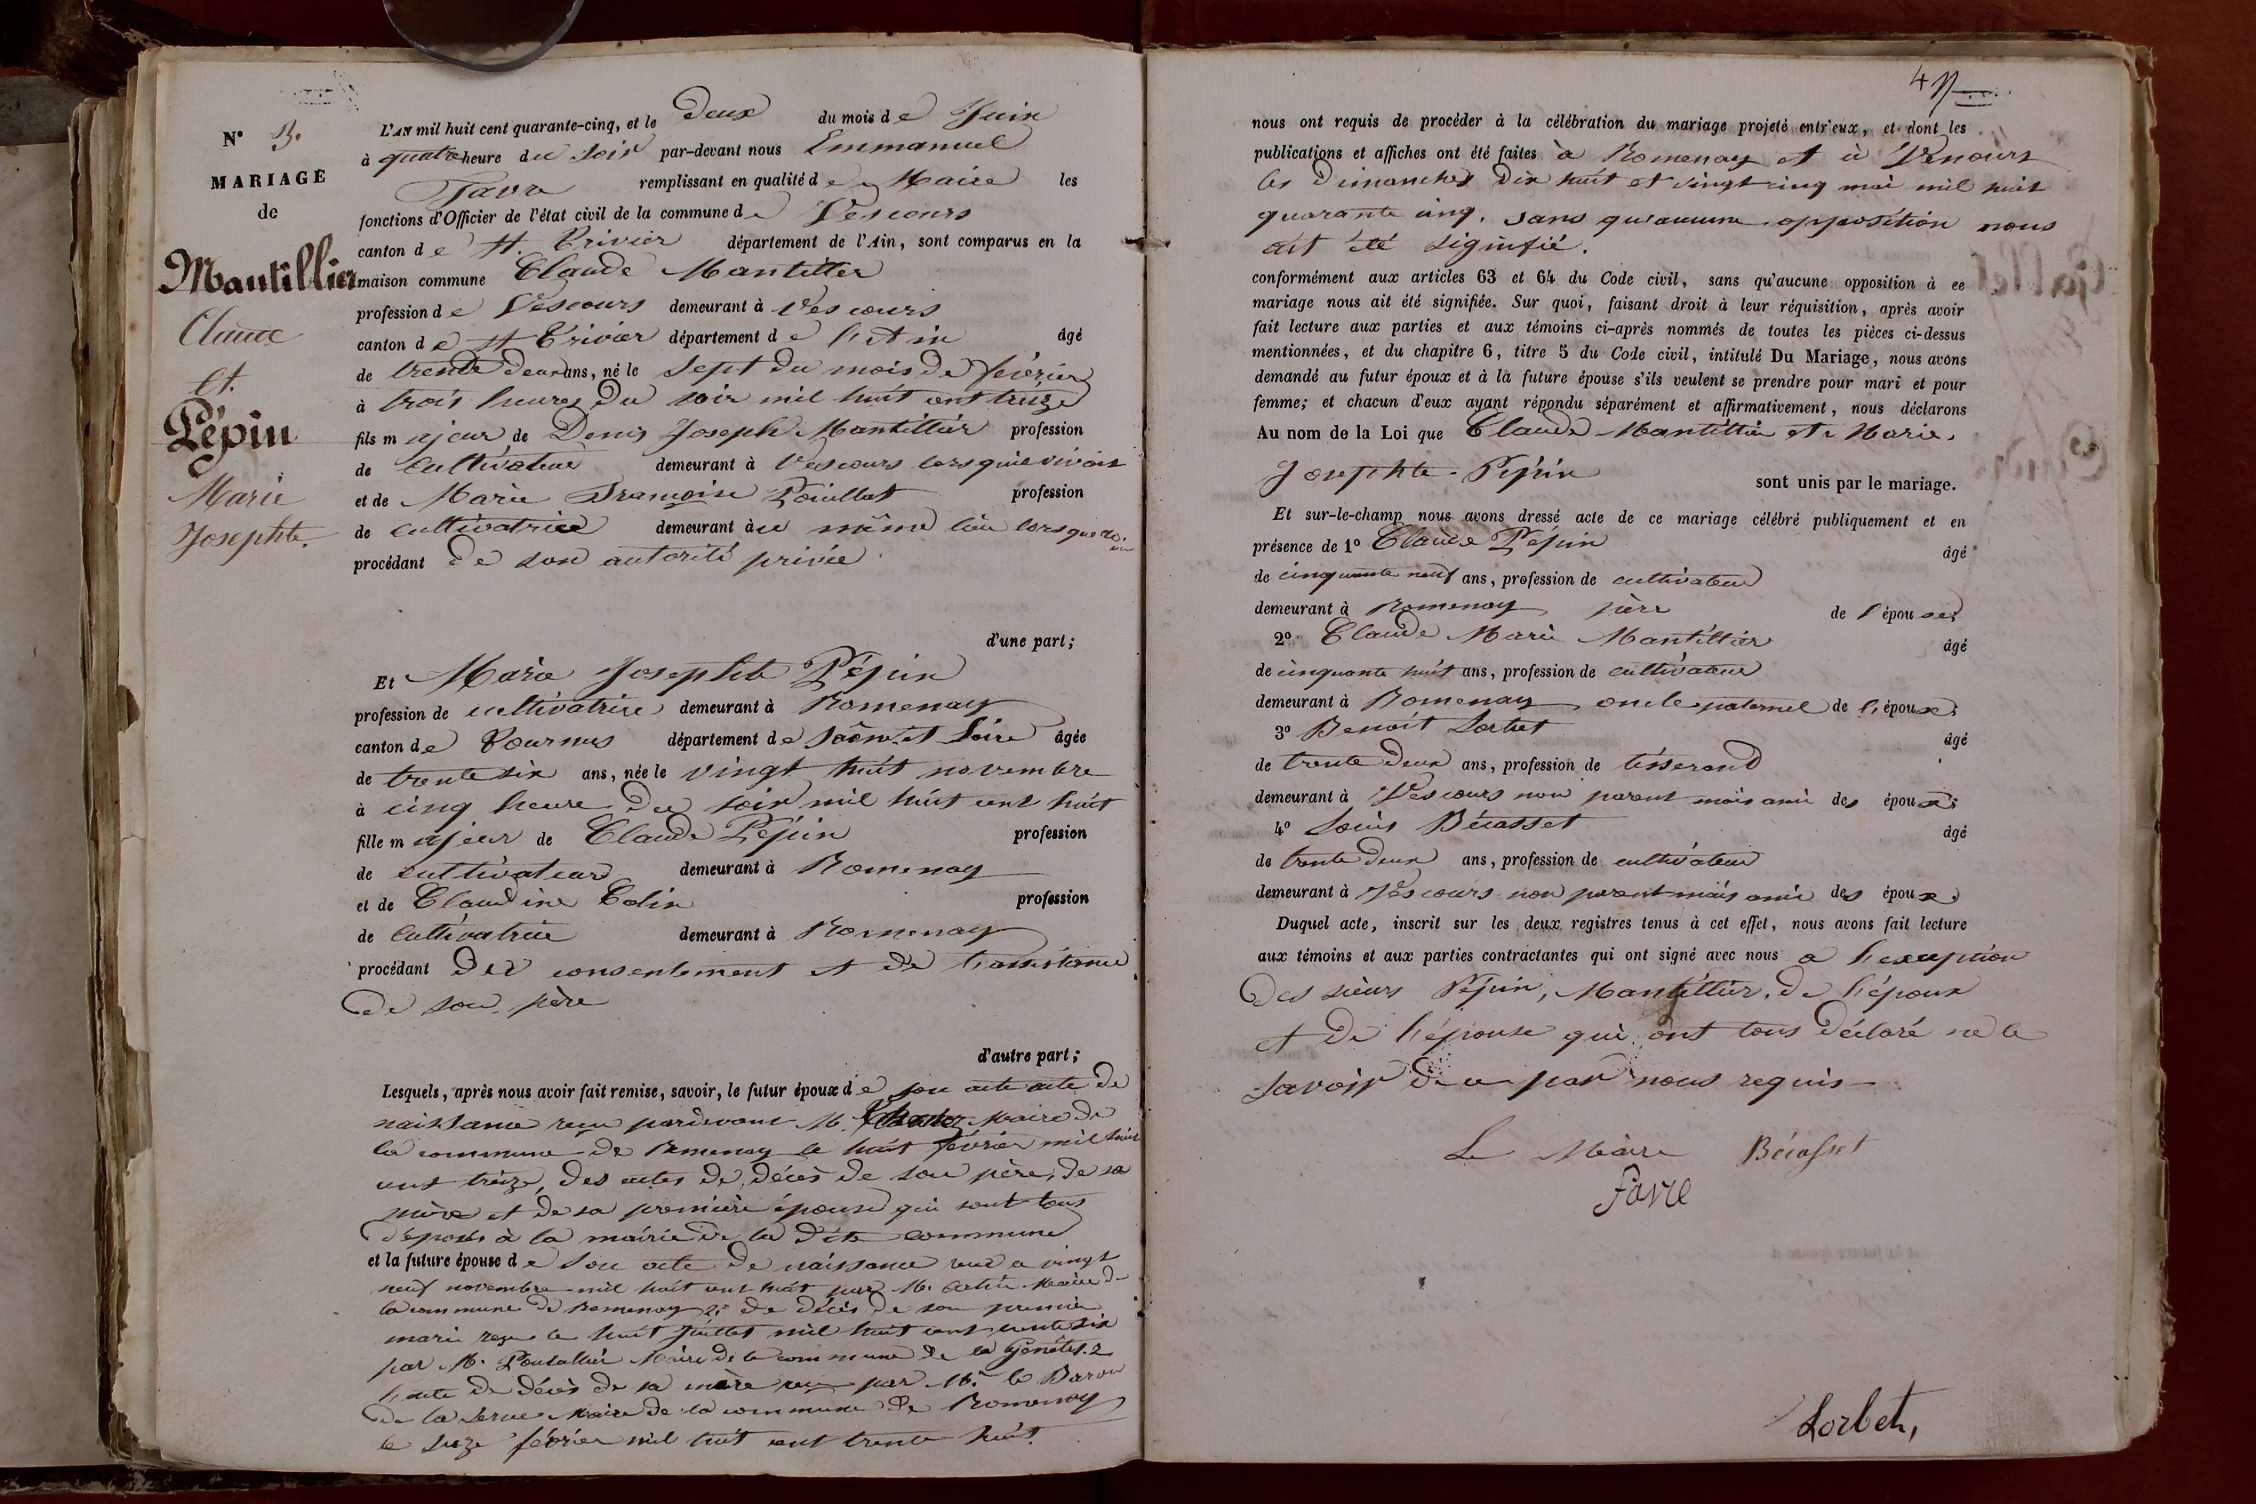 N° 3.
MARIAGE
de
Mantillier
Claude
et.
Pépin
Marie
Josephte.
L'AN mil huit cent quarante-cinq, et le deux du mois de Juin
à quatre heure du soir par-devant nous Emmanuel
Favre remplissant en qualité de Maire les
fonctions d'Officier de l'état civil de la commune de Vescours
canton de St. Trivier département de l'Ain, sont comparus en la
maison commune Claude Mantillier
profession de Vescours demeurant à Vescours
canton de St Trivier département de l'Ain âgé
de trente deux ans, né le sept du mois de février
à trois heures du soir mil huit cent treize
fils majeur de Denis Joseph Mantillier profession
de cultivateur demeurant à Vescours lorsqu'il vivait
et de Marie Françoise Pouillot profession
de cultivatrice demeurant au même lieu lorsque
procédant de son autorité privée
d'une part;
Et Marie Josephte Pépin
profession de cultivatrice demeurant à Romenay
canton de Tournus département de Saône et Loire âgée
de trente six ans, née le vingt huit novembre
à cinq heure du soir mil huit cent huit
fille majeur de Claude Pépin profession
de cultivateur demeurant à Romenay
et de Claudine Colin profession
de cultivatrice demeurant à Romenay
procédant du consentement et de l'assistance
de son père
d'autre part;
Lesquels, après nous avoir fait remise, savoir, le futur époux de son acte acte de
naissance reçu pardevant M. Maire de
la commune de Romenay le huit février mil huit
cent treize, des actes de décès de son père, de sa
mère et de sa première épouse qui sont tous
déposés à la mairie de la dite commune
et la future épouse de son acte de naissance reçu le vingt
neuf novembre mil huit cent huit par M. Maire de
la commune de Romenay 2° de décès de son premier
mari reçu le huit juillet mil huit cent trente six
par M. Maire de la commune de la Genête. 2
l'acte de décès de sa mère reçu par M. le Baron
de la Serve Maire de la commune de Romenay
le février mil huit cent trente huit.
47
nous ont requis de procéder à la célébration du mariage projeté entr'eux, et dont les
publications et affiches ont été faites à Romenay et à Vescours
les Dimanches dix huit et vingt cinq mai mil huit
quarante cinq. sans qu'aucune opposition nous
ait été signifié.
conformément aux articles 63 et 64 du Code civil, sans qu'aucune opposition à ce
mariage nous ait été signifiée. Sur quoi, faisant droit à leur réquisition, après avoir
fait lecture aux parties et aux témoins ci-après nommés de toutes les pièces ci-dessus
mentionnées, et du chapitre 6, titre 5 du Code civil, intitulé Du Mariage, nous avons
demandé au futur époux et à la future épouse s'ils veulent se prendre pour mari et pour
femme; et chacun d'eux ayant répondu séparément et affirmativement, nous déclarons
Au nom de la Loi que Claude Mantillier et Marie
Josephte Pépin sont unis par le mariage.
Et sur-le-champ nous avons dressé acte de ce mariage célébré publiquement et en
présence de 1° Claude Pépin âgé
de cinquante neuf ans, profession de cultivateur
demeurant à Romenay père de l'épouse;
2° Claude Marie Mantillier âgé
de cinquante huit ans, profession de cultivateur
demeurant à Romenay oncle paternel de l'époux;
3° Benoit Lorbet âgé
de trente deux ans, profession de tisserand
demeurant à Vescours non parent mais ami des époux;
4° Louis Bécasset âgé
de trente deux ans, profession de cultivateur
demeurant à Vescours non parent mais ami des époux.
Duquel acte, inscrit sur les deux registres tenus à cet effet, nous avons fait lecture
aux témoins et aux parties contractantes qui ont signé avec nous a l'exception
des sieurs Pépin, Mantillier, de l'époux
et de l'épouse qui ont tous déclaré ne le
savoir de ce par nous requis
Le Maire Bécasset
Favre
Lorbet,